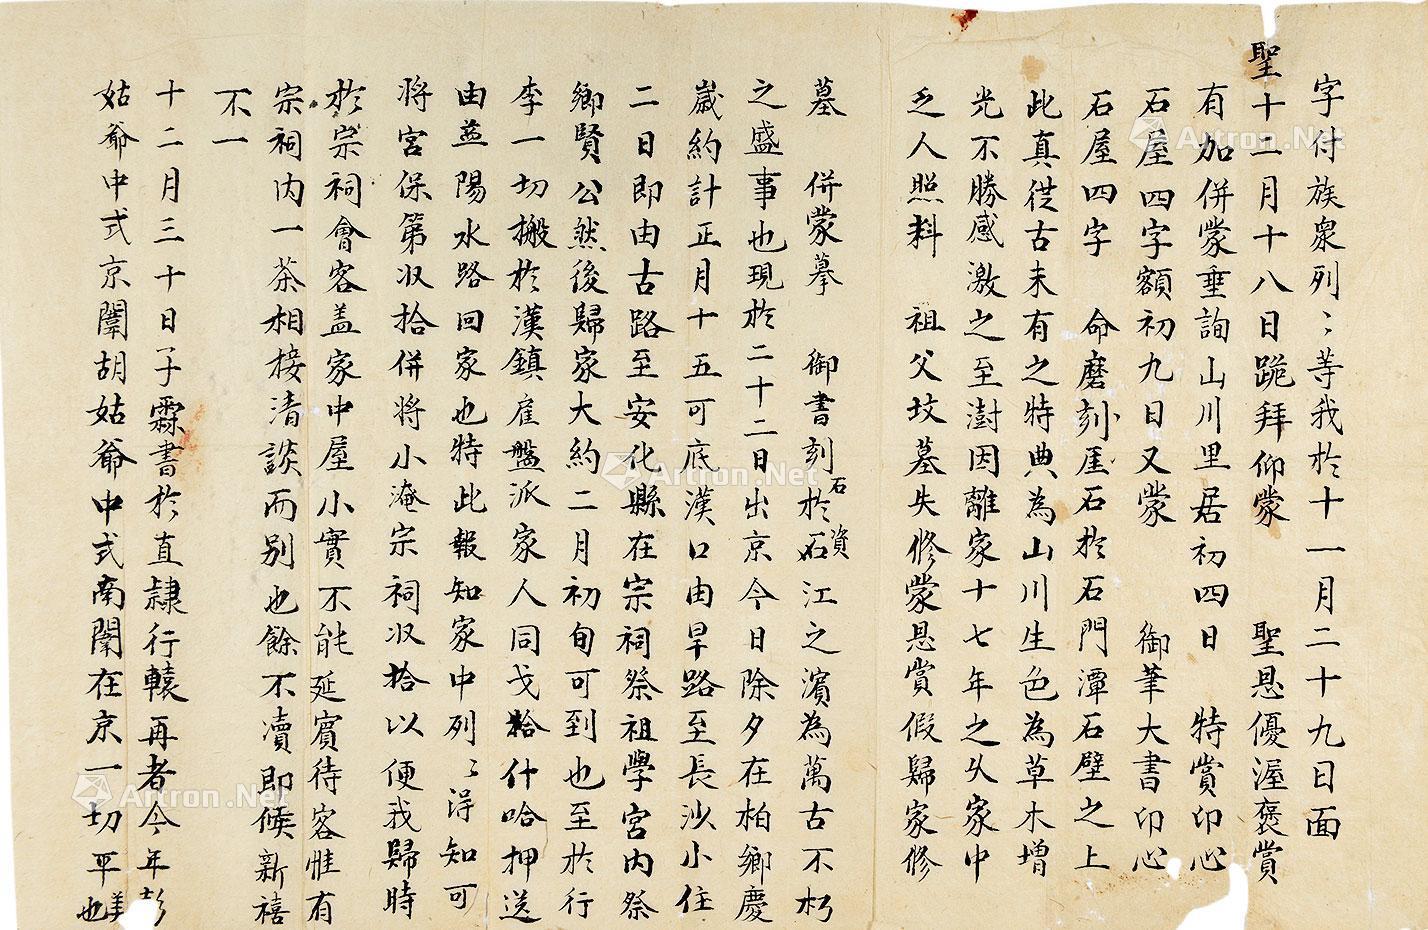 字付族衆列〻等我於十一月二十九日面
聖十二月十八日跪拜仰蒙 聖恩優渥褒賞
有加併蒙垂詢山川里居初四日 特賞印心
石屋四字額初九日又蒙 御筆大書印心
石屋四字 命磨刻厓石於石門潭石壁之上
此真從古未有之特典為山川生色為草木增
光不勝感激之至澍因離家十七年之久家中
乏人照料 祖父坟墓失修蒙恩賞假歸家修
墓 併蒙摹 御書刻石於資江之濱為萬古不朽
之盛事也現於二十二日出京今日除夕在柏鄉慶
歲約計正月十五可底漢口由旱路至長沙小住
二日即由古路至安化縣在宗祠祭祖學宮內祭
鄉賢公然後歸家大約二月初旬可到也至於行
李一切搬於漢鎮雇盤派家人同戈什哈押送
由益陽水路回家也特此報知家中列〻淂知可
將宮保第收拾併將小淹宗祠收拾以便我歸時
於宗祠會客盖家中屋小實不能延賓待客惟有
宗祠內一茶相接清談而別也餘不瀆即候新禧
不一
十二月三十日子霖書於直隸行轅再者今年彭
姑爺中式京闈胡姑爺中式南闈在京一切平善也
Artron.Net
Artron.Net
Artron.Net
Artron.Net
Artron.Net
Artron.Net